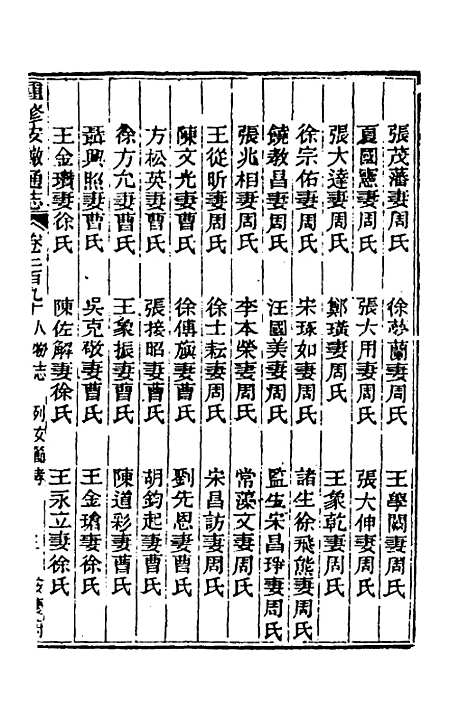 張茂藩妻周氏　徐夢蘭妻周氏　王學閎妻周氏
夏國憲妻周氏　張大用妻周氏　張大伸妻周氏
張大達妻周氏　鄭璜妻周氏　王象乾妻周氏
徐宗佑妻周氏　宋琢如妻周氏　諸生徐飛熊妻周氏
饒教昌妻周氏　汪國美妻周氏　監生宋昌琤妻周氏
張兆相妻周氏　李本榮妻周氏　常藻文妻周氏
王從昕妻周氏　徐士耘妻周氏　宋昌訪妻周氏
陳文光妻曹氏　徐傅旗妻曹氏　劉先恩妻曹氏
方松英妻曹氏　張接昭妻曹氏　胡鈞起妻曹氏
徐方允妻曹氏　王象振妻曹氏　陳道彩妻曹氏
聶興照妻曹氏　吳克敬妻曹氏　王金瑲妻徐氏
王金瓚妻徐氏　陳佐解妻徐氏　王永立妻徐氏
重修安徽通志　卷二百九十　人物志　列女